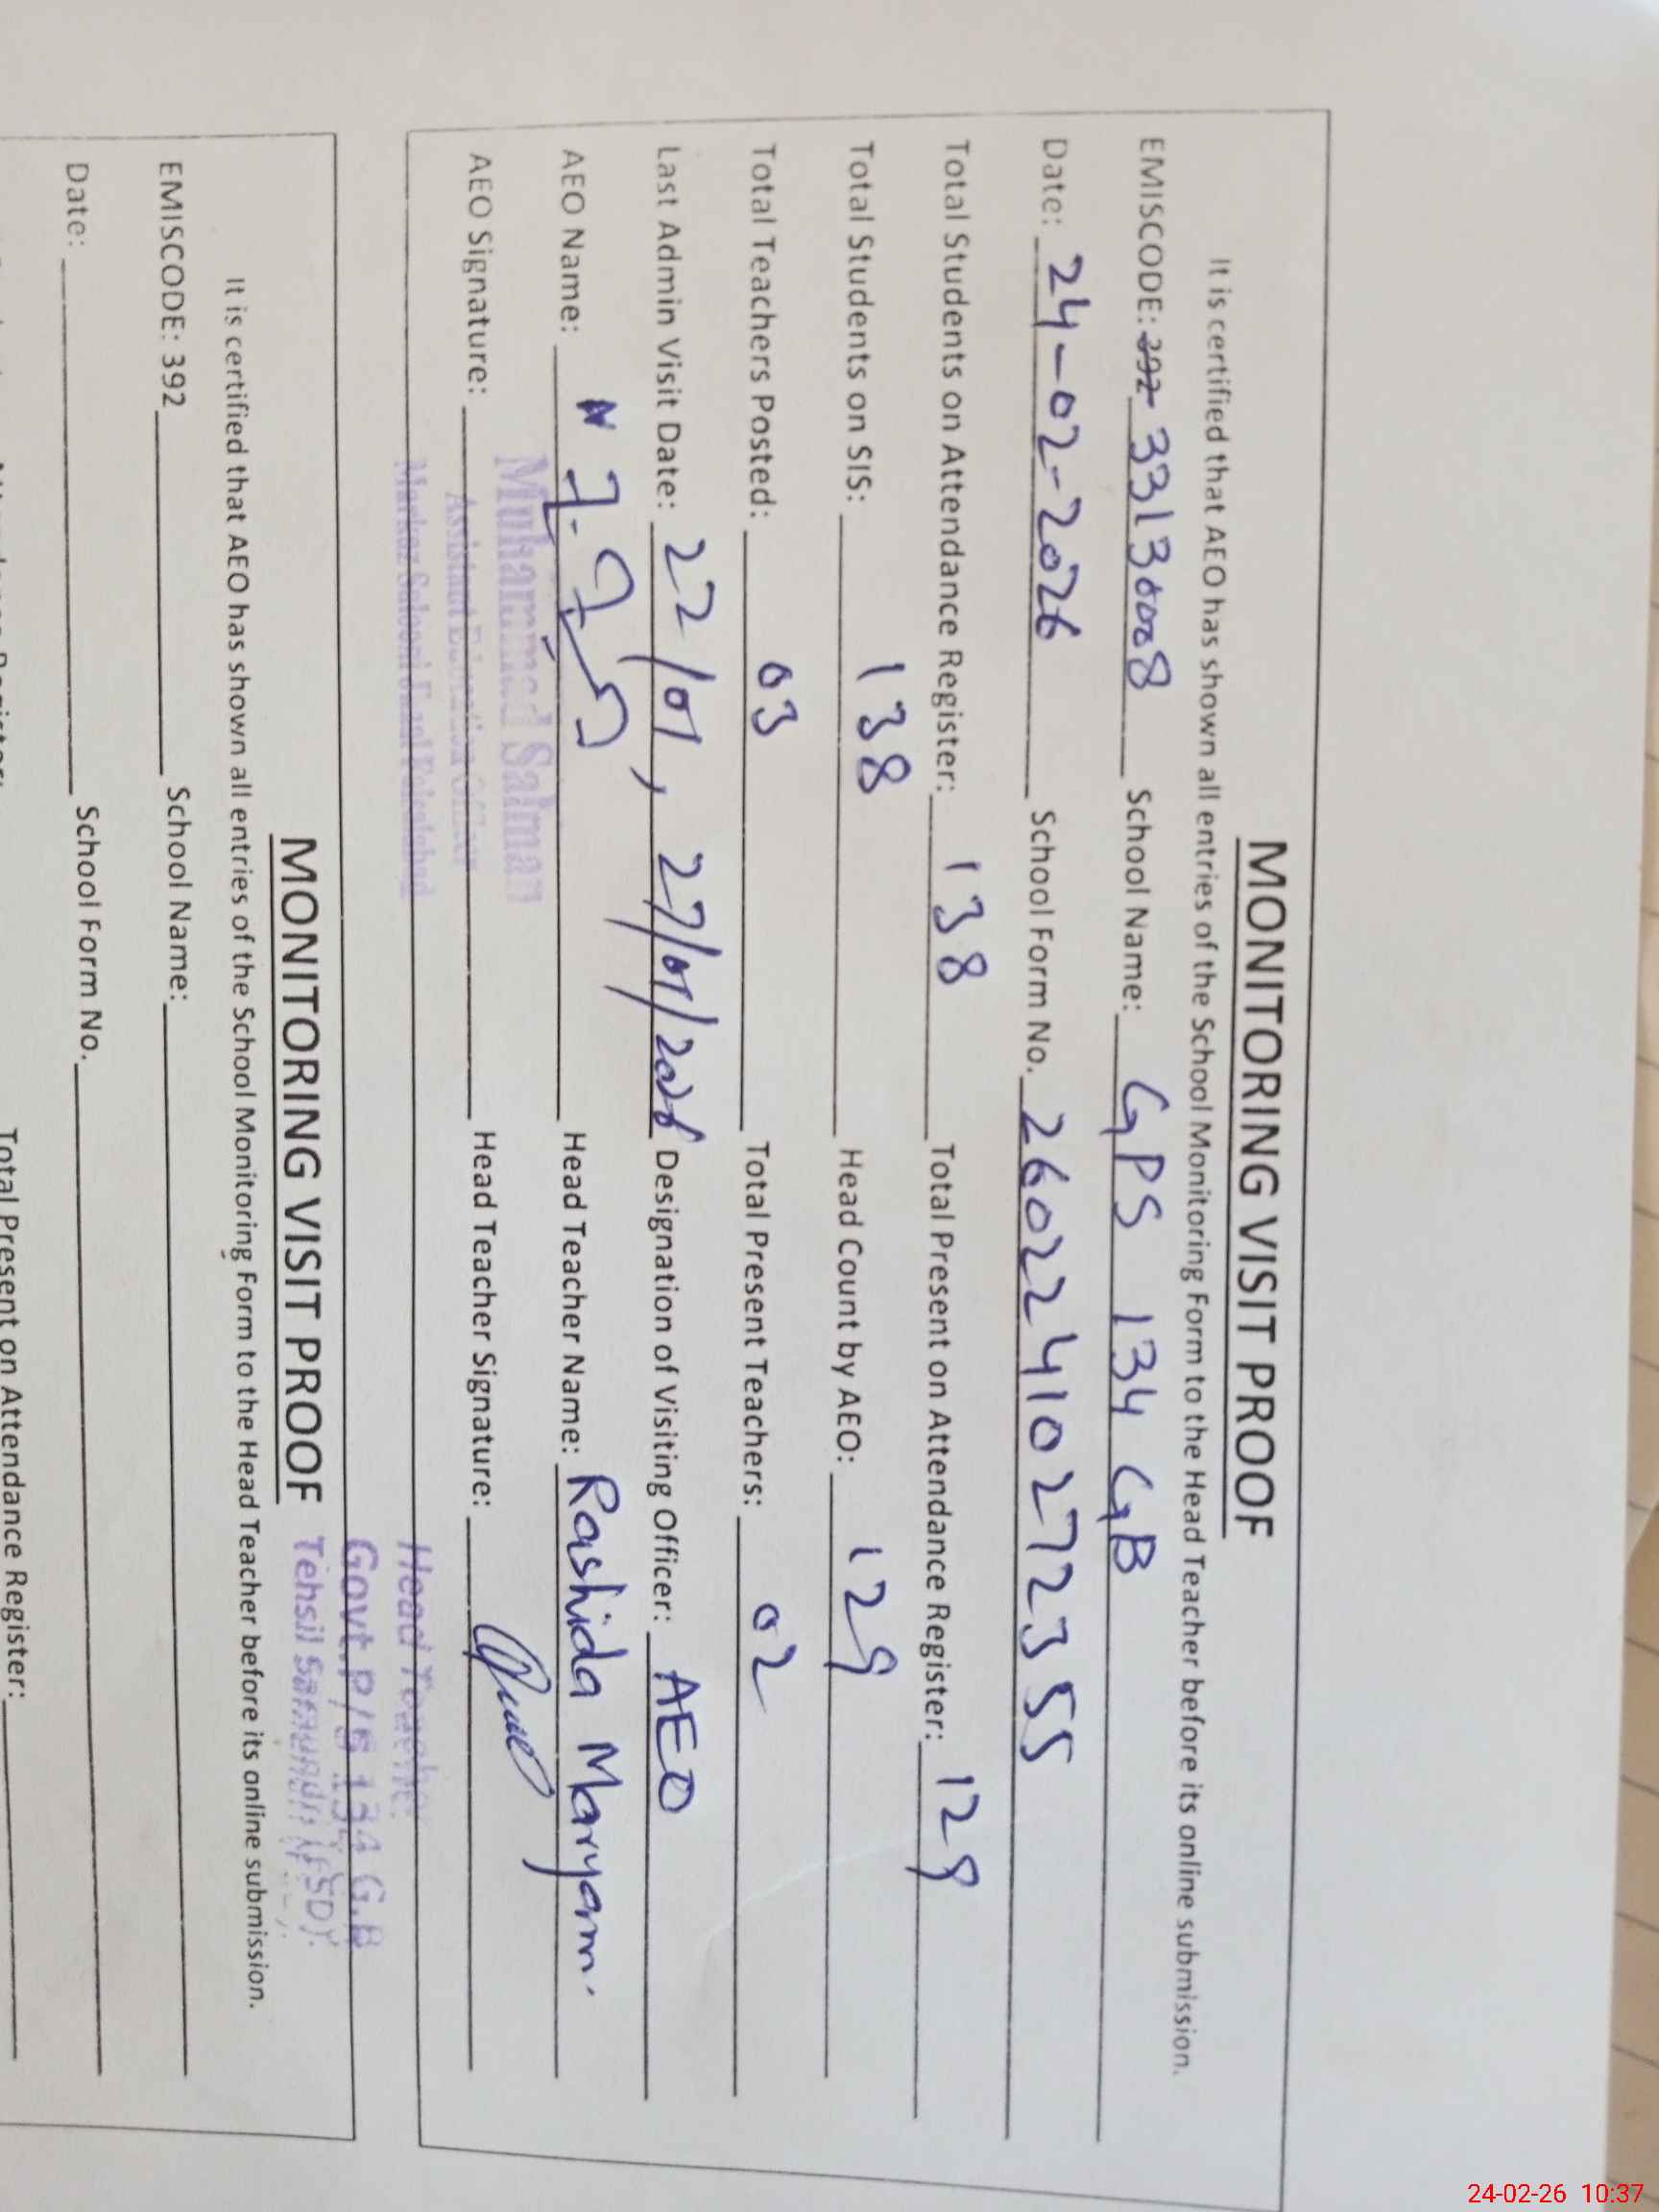 MONITORING VISIT PROOF
It is certified that AEO has shown all entries of the School Monitoring Form to the Head Teacher before its online submission.
EMISCODE: 392 33130008 School Name: GPS 134 GB
Date: 24-02-2026 School Form No. 26022410272355
Total Students on Attendance Register: 138 Total Present on Attendance Register: 129
Total Students on SIS: 138 Head Count by AEO: 129
Total Teachers Posted: 03 Total Present Teachers: 02
Last Admin Visit Date: 22/01, 27/01/2026 Designation of Visiting Officer: AEO
AEO Name: Head Teacher Name: Rashida Maryam.
Muhammad Salman
AEO Signature: Head Teacher Signature:
Assistant Education Officer
Markaz Faisalabad
Head Teacher
Govt. P/S 134 G.B
Tehsil Samundri (FSD).
MONITORING VISIT PROOF
It is certified that AEO has shown all entries of the School Monitoring Form to the Head Teacher before its online submission.
EMISCODE: 392 School Name:
Date: School Form No.
Total Present on Attendance Register:
24-02-26 10:37